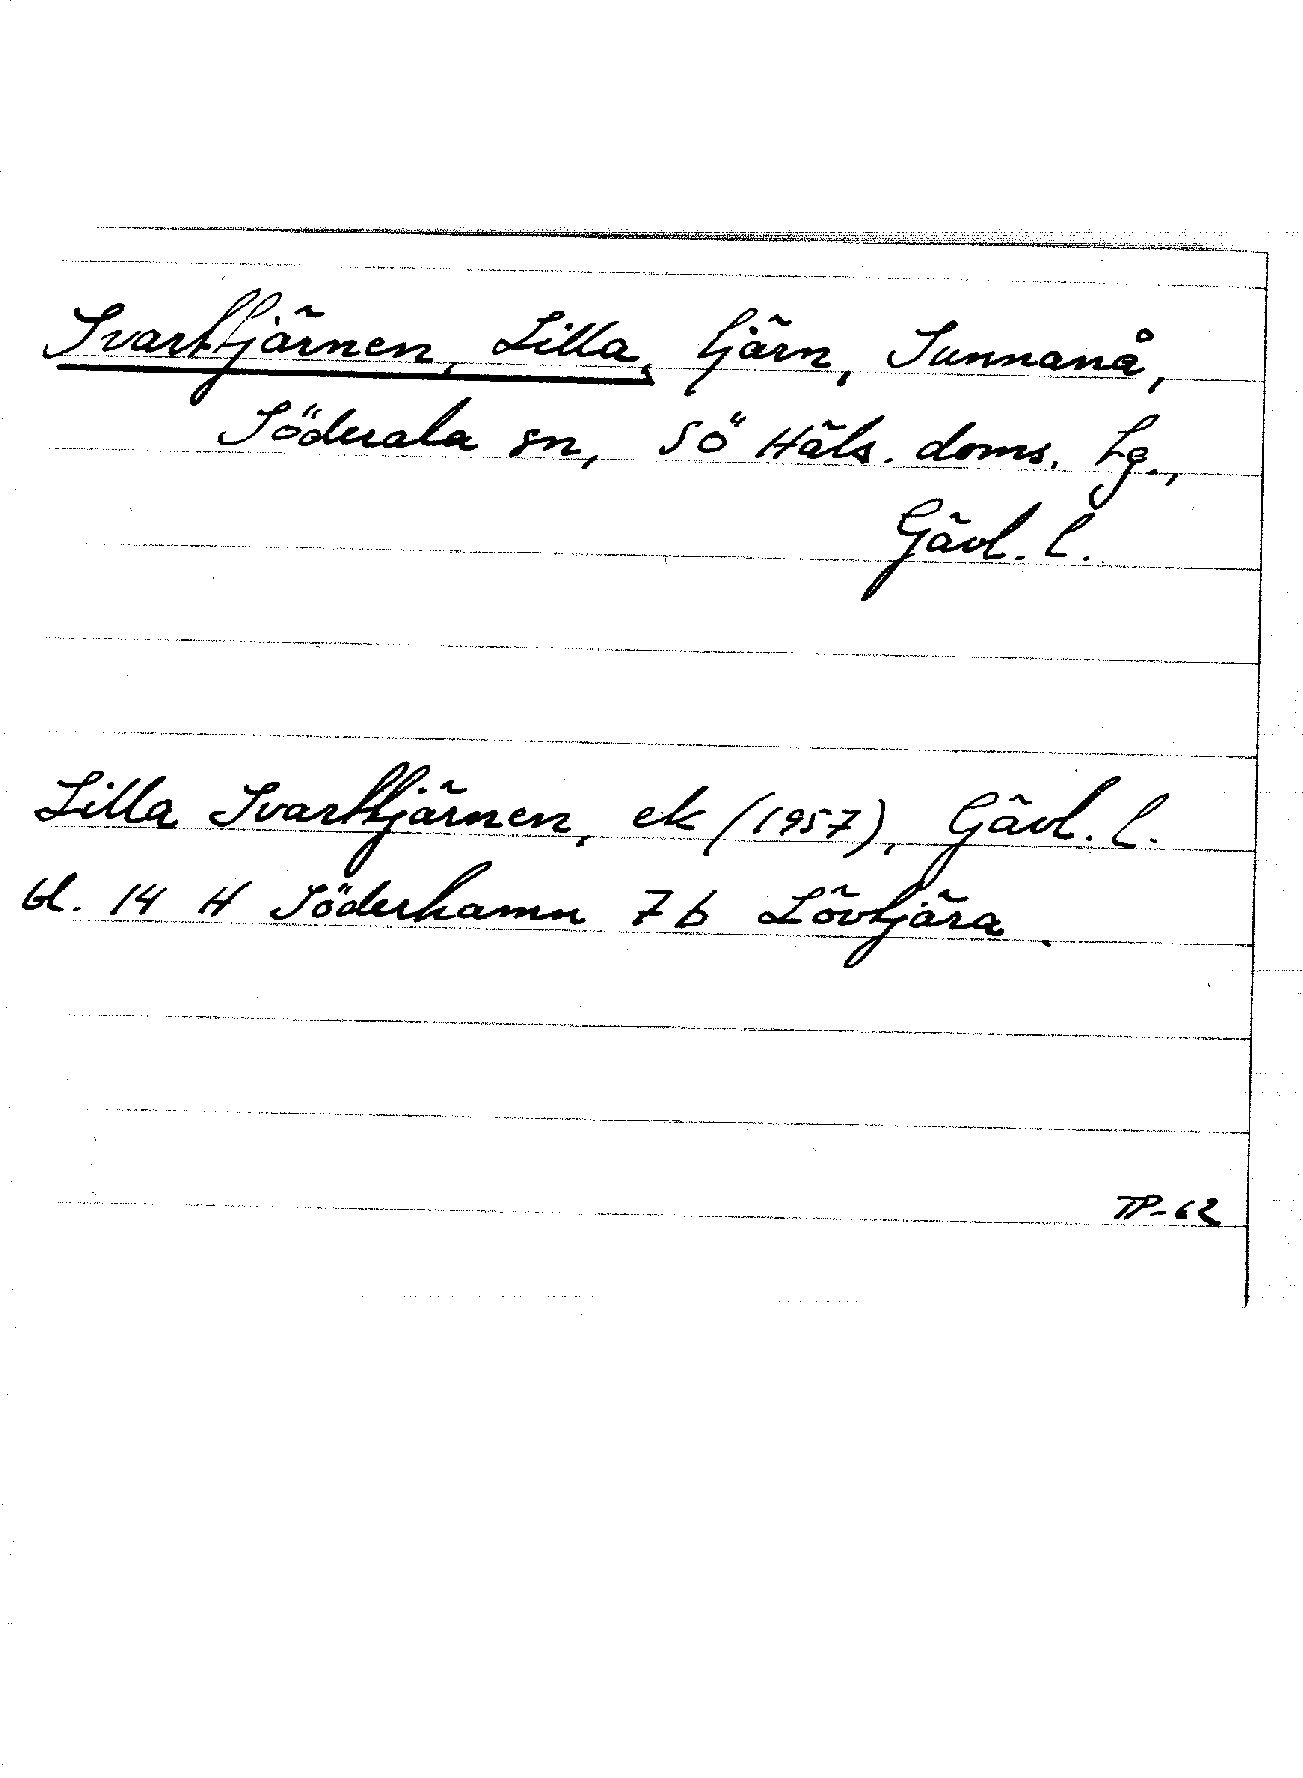 Svarttjärnen, Lilla, tjärn, Sunnanå,
Söderala sn, SÖ Häls. doms. tg.,
Gävl. l.
Lilla Svarttjärnen, ek (1957), Gävl. l.
bl. 14 H Söderhamn 7b Lövtjära.
TP-62